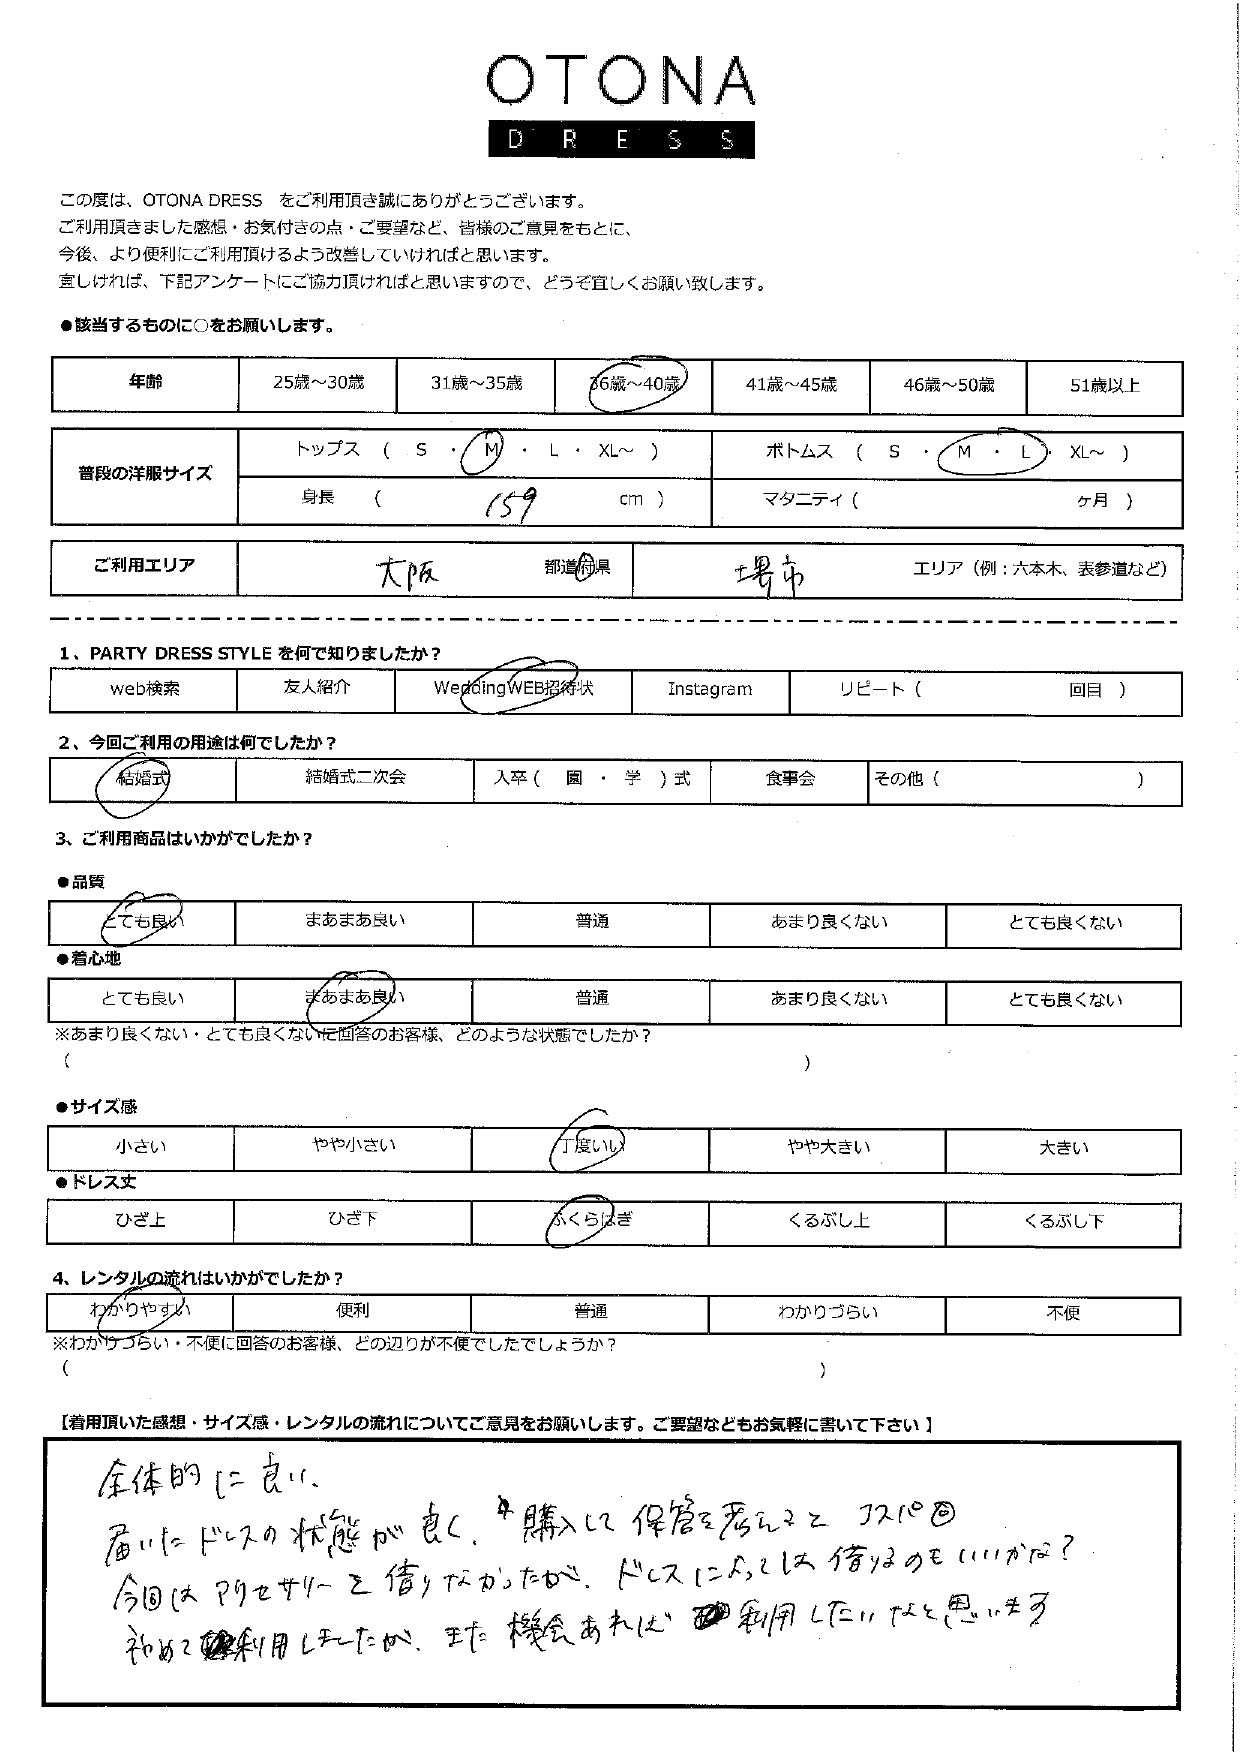 OTONA
DRESS
この度は、OTONA DRESS をご利用頂き誠にありがとうございます。
ご利用頂きました感想・お気付きの点・ご要望など、皆様のご意見をもとに、
今後、より便利にご利用頂けるよう改善していければと思います。
宜しければ、下記アンケートにご協力頂ければと思いますので、どうぞ宜しくお願い致します。
●該当するものに○をお願いします。
年齢 25歳～30歳 31歳～35歳 36歳～40歳 41歳～45歳 46歳～50歳 51歳以上
普段の洋服サイズ トップス ( S ・ M ・ L ・ XL～ ) ボトムス ( S ・ M ・ L ・ XL～ )
身長 ( 159 cm ) マタニティ ( ヶ月 )
ご利用エリア 大阪 都道府県 堺市 エリア（例：六本木、表参道など）
1、PARTY DRESS STYLE を何で知りましたか？
web検索 友人紹介 WeddingWEB招待状 Instagram リピート ( 回目 )
2、今回ご利用の用途は何でしたか？
結婚式 結婚式二次会 入卒 ( 園 ・ 学 ) 式 食事会 その他 ( )
3、ご利用商品はいかがでしたか？
●品質
とても良い まあまあ良い 普通 あまり良くない とても良くない
●着心地
とても良い まあまあ良い 普通 あまり良くない とても良くない
※あまり良くない・とても良くないに回答のお客様、どのような状態でしたか？
( )
●サイズ感
小さい やや小さい 丁度いい やや大きい 大きい
●ドレス丈
ひざ上 ひざ下 ふくらはぎ くるぶし上 くるぶし下
4、レンタルの流れはいかがでしたか？
わかりやすい 便利 普通 わかりづらい 不便
※わかりづらい・不便に回答のお客様、どの辺りが不便でしたでしょうか？
( )
【着用頂いた感想・サイズ感・レンタルの流れについてご意見をお願いします。ご要望などもお気軽に書いて下さい】
全体的に良い、
届いたドレスの状態が良く、購入して保管を考えると コスパ
今回はアクセサリーを借りなかったが、ドレスによっては借りるのもいいかな？
初めて利用しましたが、また機会あれば利用したいなと思います